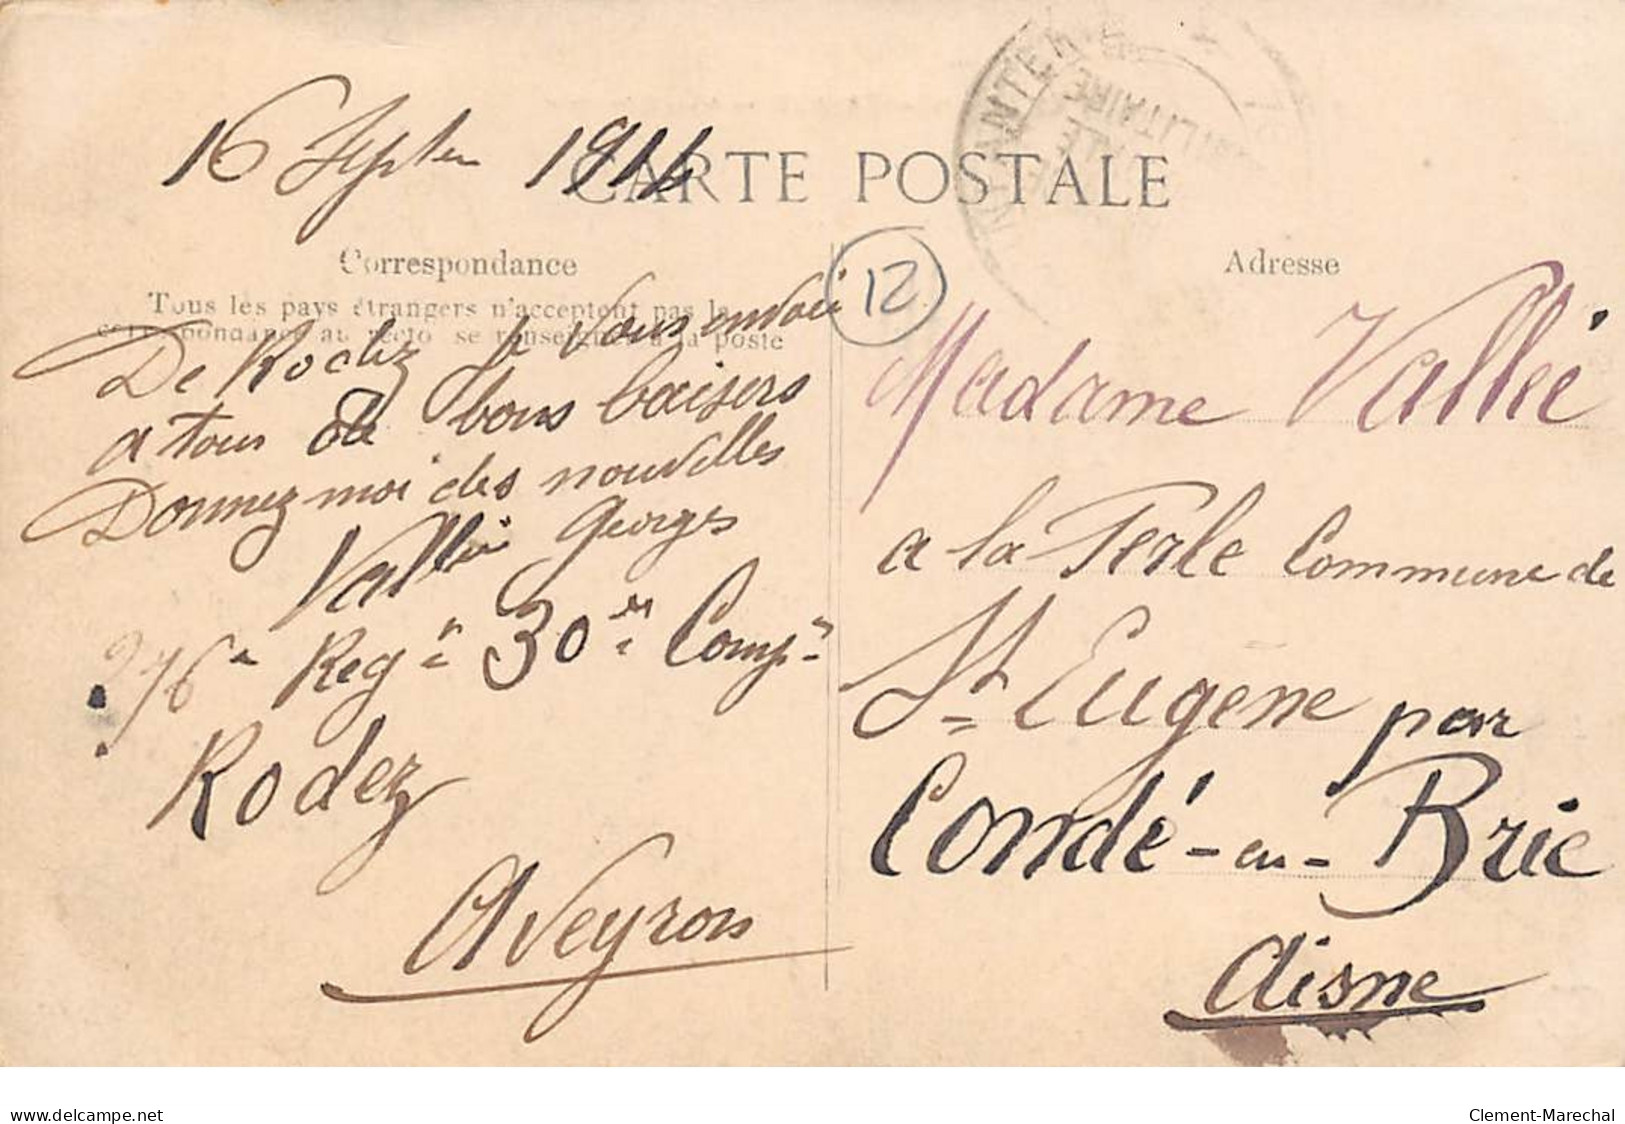 16 Septem 1914
CARTE POSTALE
INFANTERIE
MILITAIRE
Correspondance
12
Adresse
Tous les pays étrangers n'acceptent pas la
correspondance au recto se renseigner à la poste
De Rodez je vous envoi
a tous de bons baisers
Donnez moi des nouvelles
Vallée Georges
276e Reg 30e Comp
Rodez
Aveyron
Madame Vallée
a la Perle Commune de
St Eugène par
Condé-en-Brie
Aisne
delcampe.net
Clement-Marechal